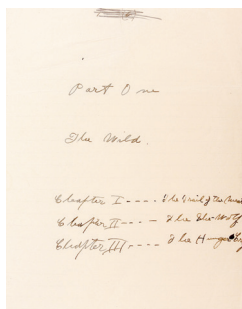 Part One
The Wild.
Chapter I---- The Trail of the Meat
Chapter II---- The She-Wolf
Chapter III---- The H